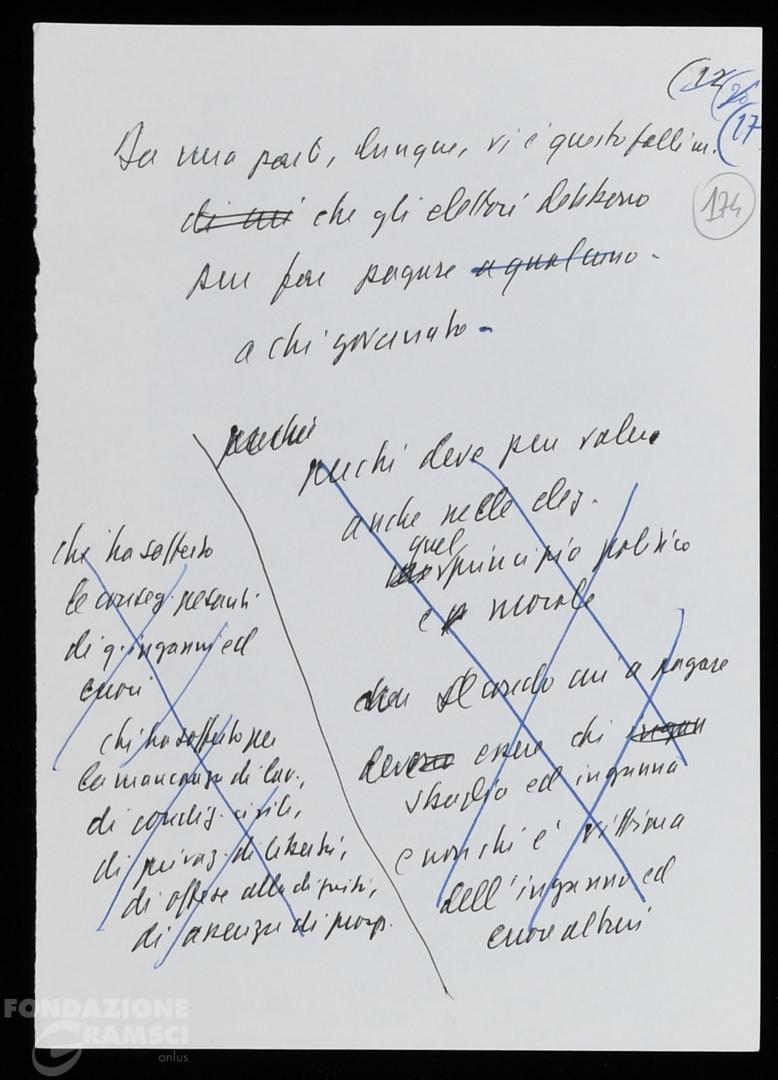 (12
(20
(17
174
Da una parte, dunque, vi è questo fallim.
di cui che gli elettori debbono
pur fare pagare a qualcuno.
a chi governato.
perché
perché deve pur valere
anche nelle elez.
quel
principio politico
e morale
secondo cui a pagare
deve essere chi
sbaglia ed inganna
e non chi è vittima
dell'inganno ed
errore altrui
che ha sofferto
le conseg. pesanti
di q. inganni ed
errori
chi ha sofferto per
la mancanza di lav.,
di condiz. civili,
di privaz. di libertà,
di offese alla dignità,
di assenza di prosp.
FONDAZIONE
GRAMSCI
onlus